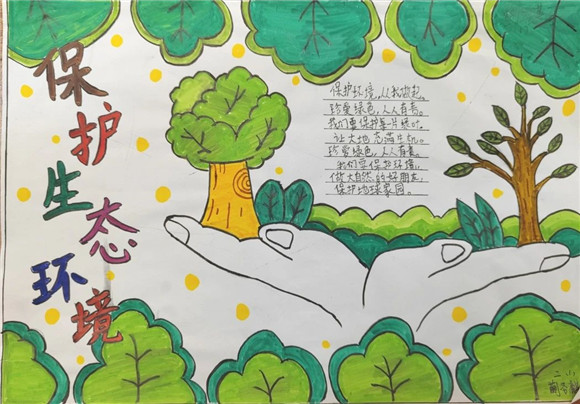 保护生态环境
保护环境,从我做起,
珍爱绿色,人人有责。
我们要保护每一片绿叶,
让大地充满生机。
珍爱绿色,人人有责。
我们要保护环境,
做大自然的好朋友,
保护地球家园。